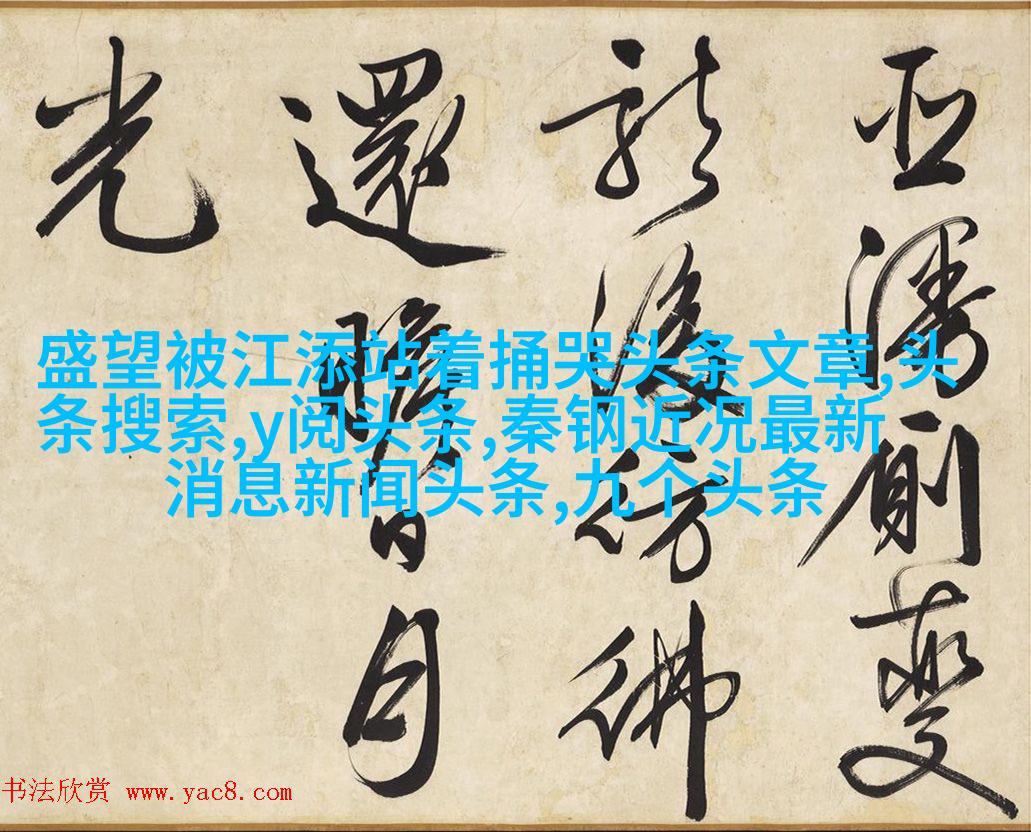 夔
龍後彷彿
還瞻日月
光
盛望被江添站着捅哭头条文章,头
条搜索,y阅头条,秦钢近况最新
消息新闻头条,九个头条
书法欣赏 www.yac8.com